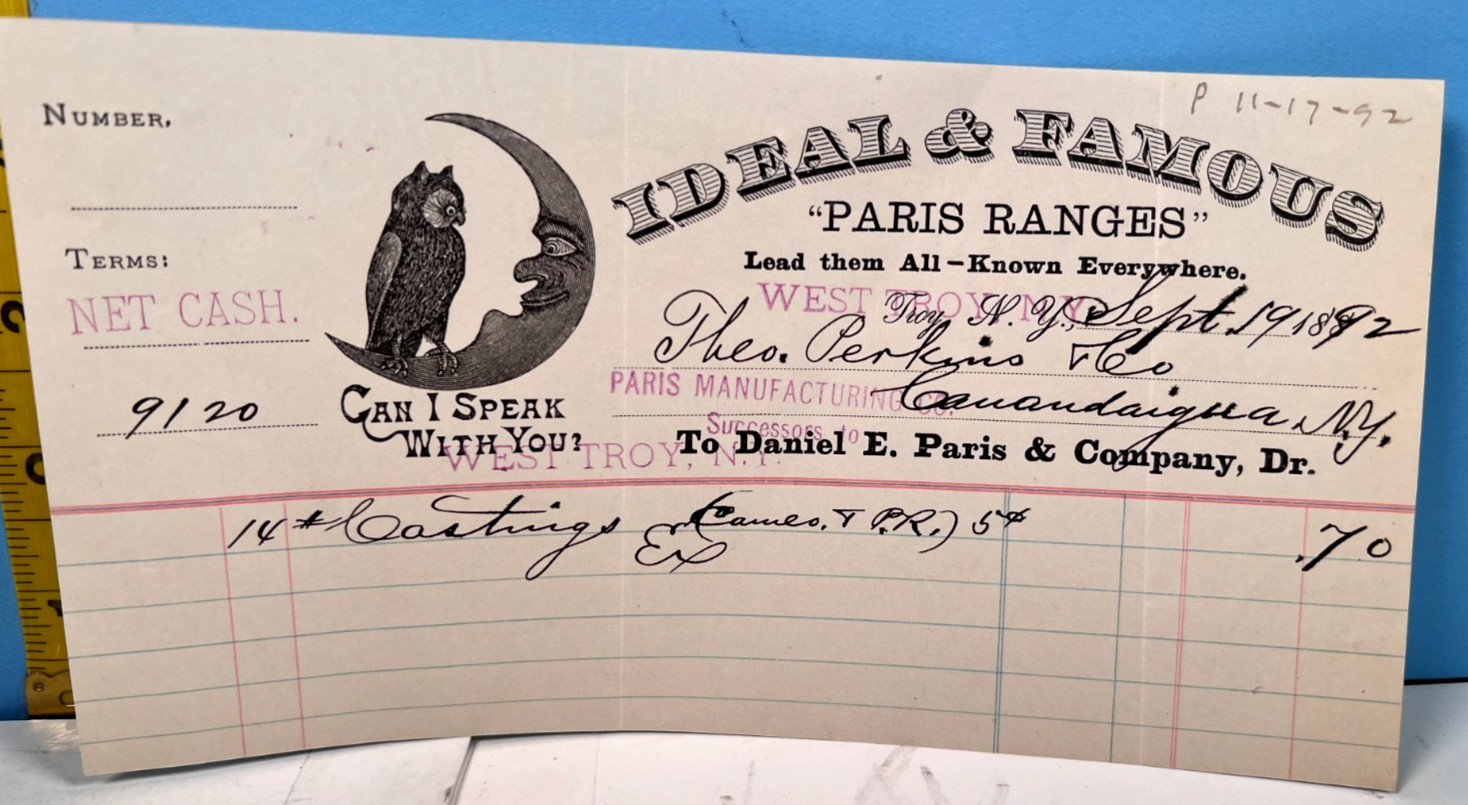 P 11-17-92
NUMBER,
IDEAL & FAMOUS
"PARIS RANGES"
Lead them All–Known Everywhere.
TERMS:
NET CASH.
WEST TROY, N.Y.
Troy, N. Y., Sept. 19 1892
Theo. Perkins & Co
PARIS MANUFACTURING CO.
Canandaigua N.Y.
9/20
CAN I SPEAK
WITH YOU?
Successors to
To Daniel E. Paris & Company, Dr.
WEST TROY, N.Y.
14 # Castings (Cameo. & P.R.) 5¢ .70
Ex